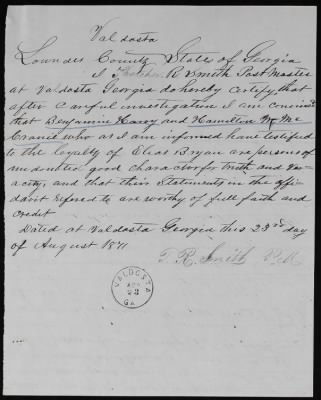 Valdosta
Lowndes County State of Georgia
I R Smith Post Master
at Valdosta Georgia do hereby certify, that
after careful investigation I am convinced
that Benjamin and Hamilton W Mc
Cranie who as I am informed have testified
to the loyalty of Elias Bryan are persons of
undoubted good character for truth and ver
acity, and that their statements in the affi
davit refered to are worthy of full faith and
credit
Dated at Valdosta Georgia this 23rd day
of August 1871
T. R. Smith P.M.
VALDOSTA
AUG
23
GA